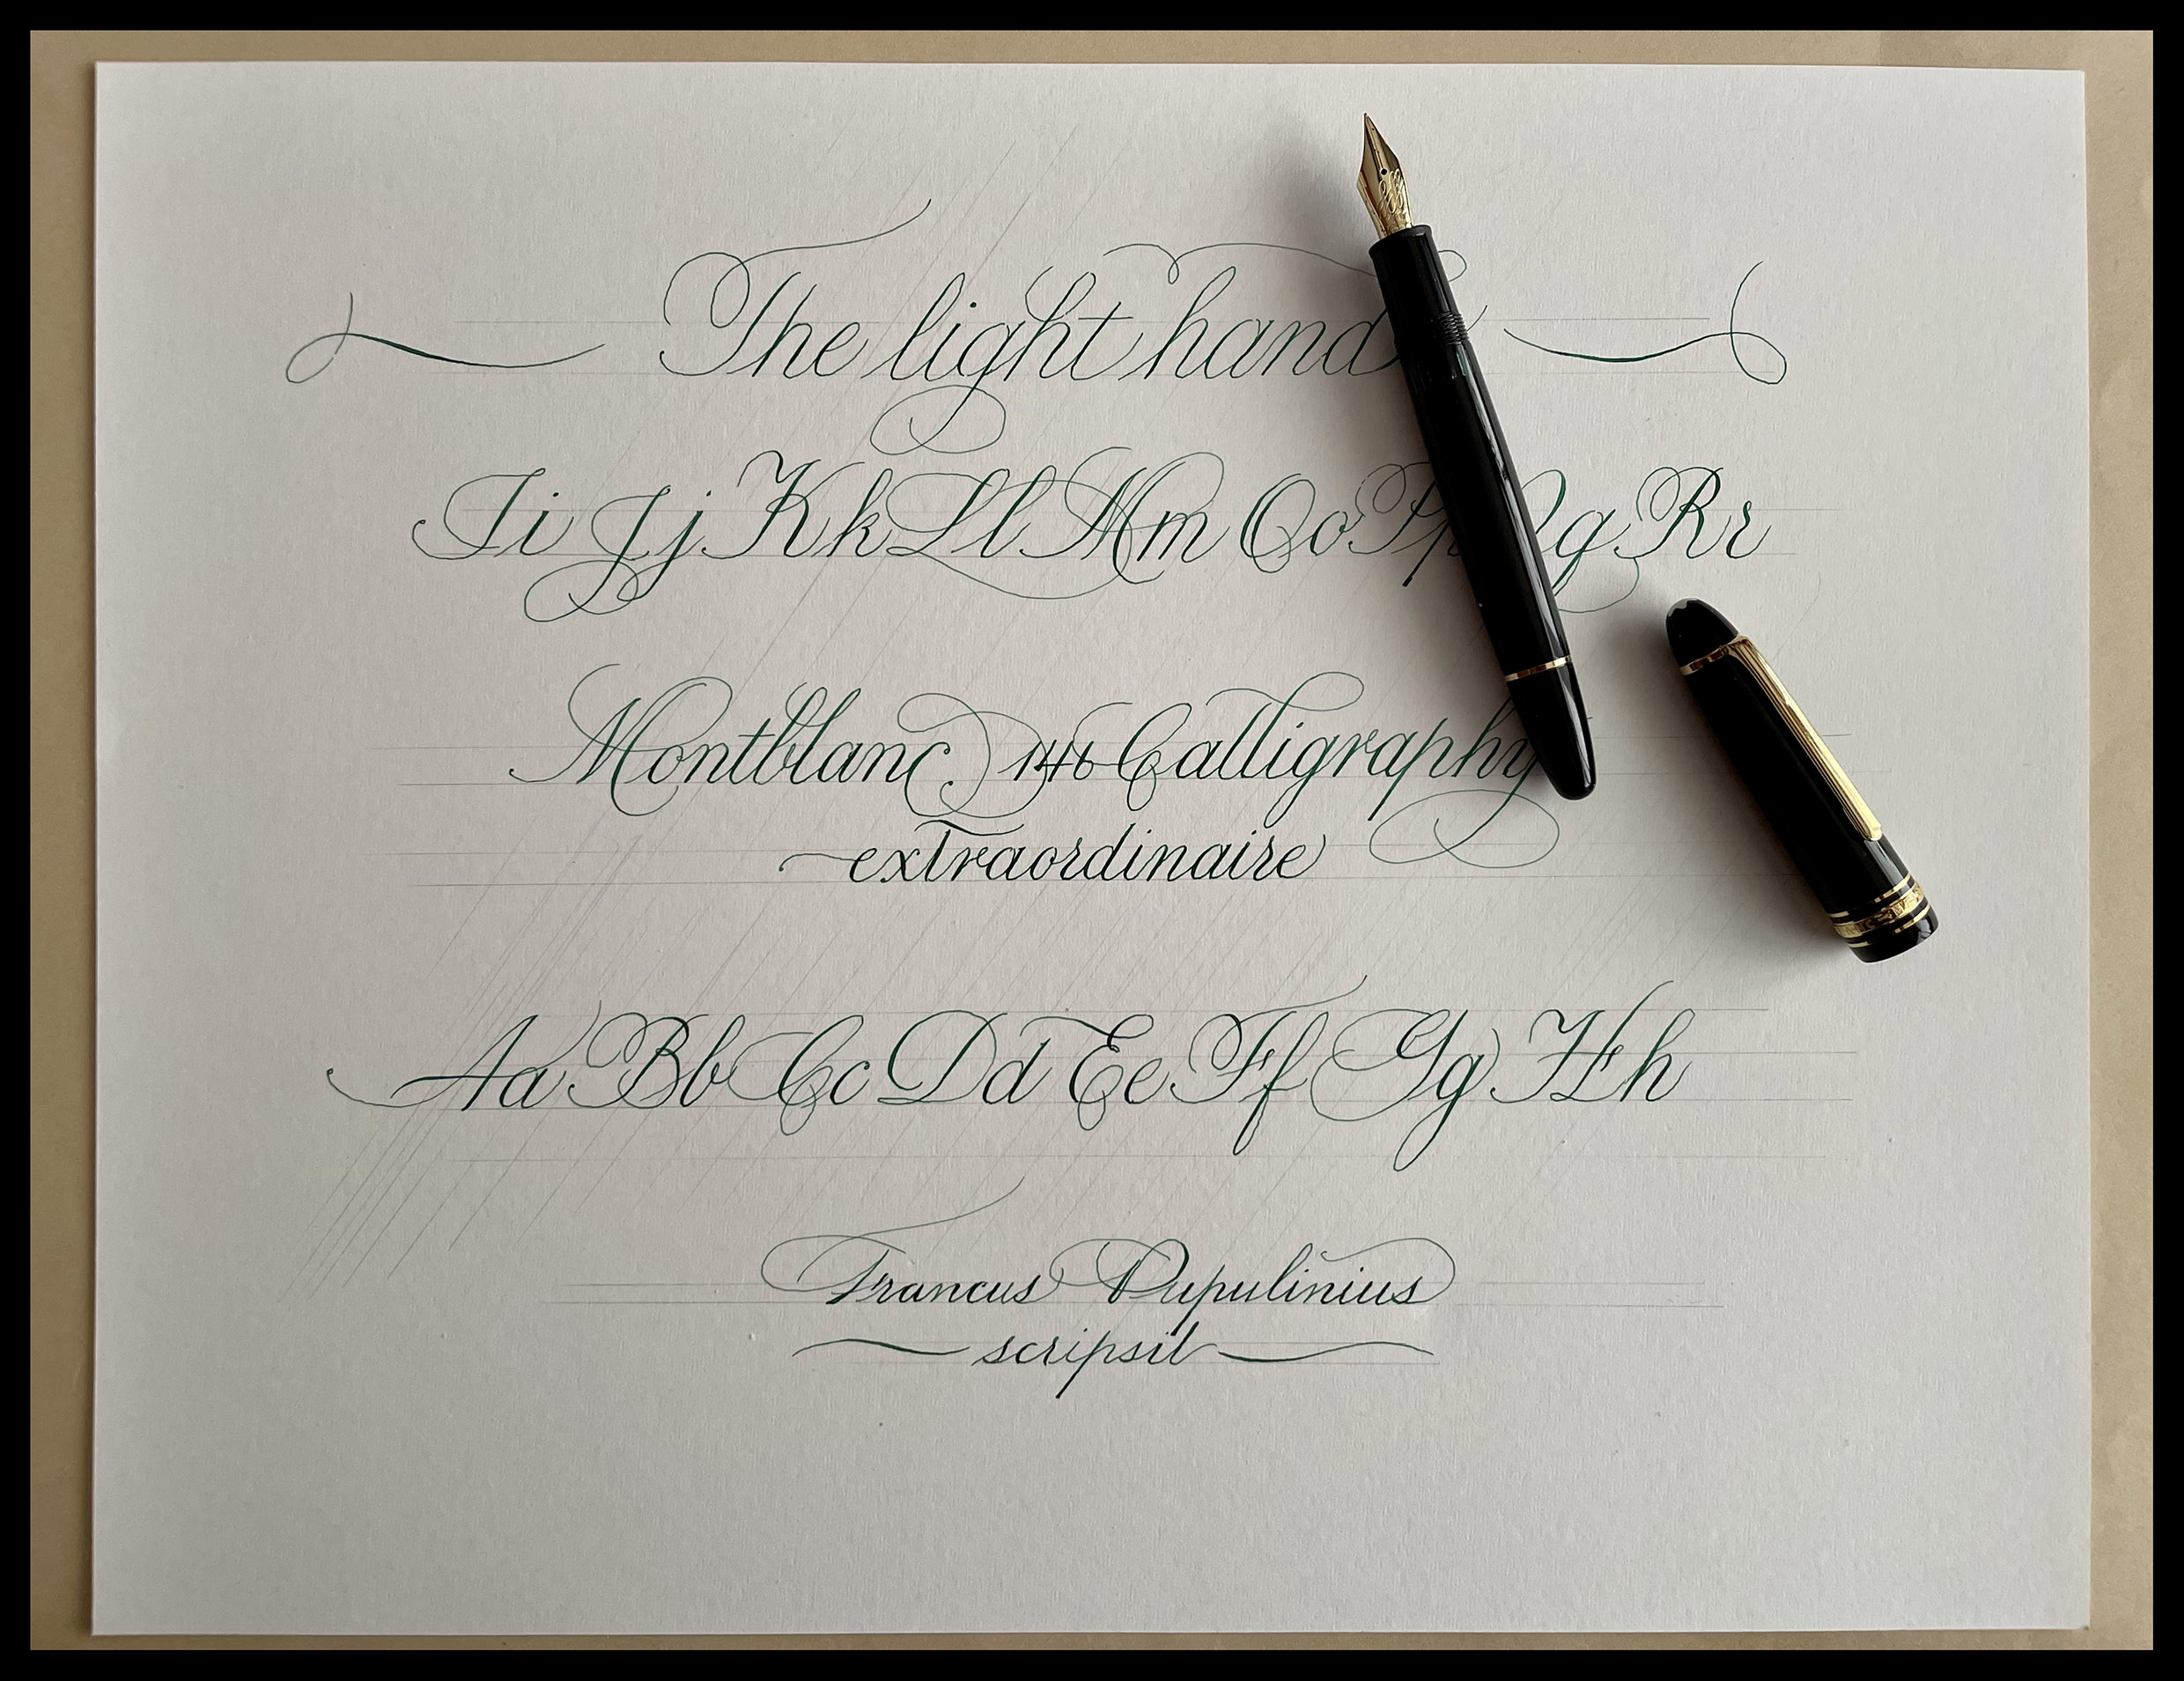 The light hand
Ii Jj Kk Ll Mm Oo Pp Qq Rr
Montblanc 146 Calligraphy
extraordinaire
Aa Bb Cc Dd Ee Ff Gg Hh
Francus Pupulinius
scripsit